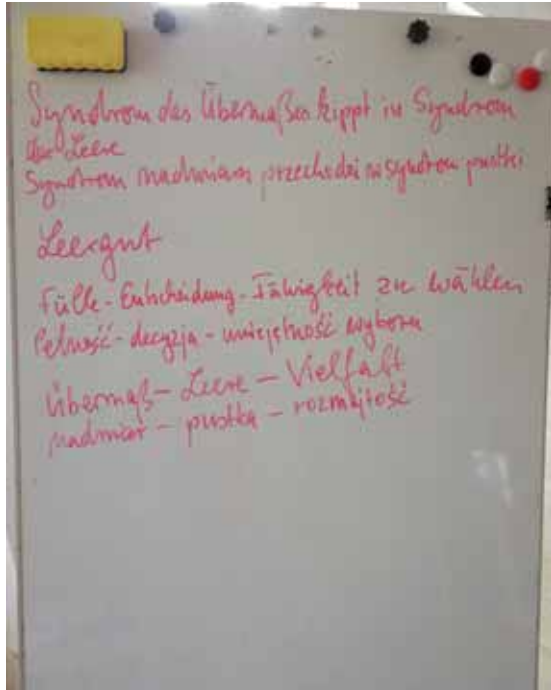 Syndrom des Übermaßes kippt in Syndrom
der Leere
Syndrom nadmiaru przechodzi w syndrom pustki
Leergut
Fülle - Entscheidung - Fähigkeit zu wählen
Pełność - decyzja - umiejętność wyboru
Übermaß - Leere - Vielfalt
nadmiar - pustka - rozmaitość